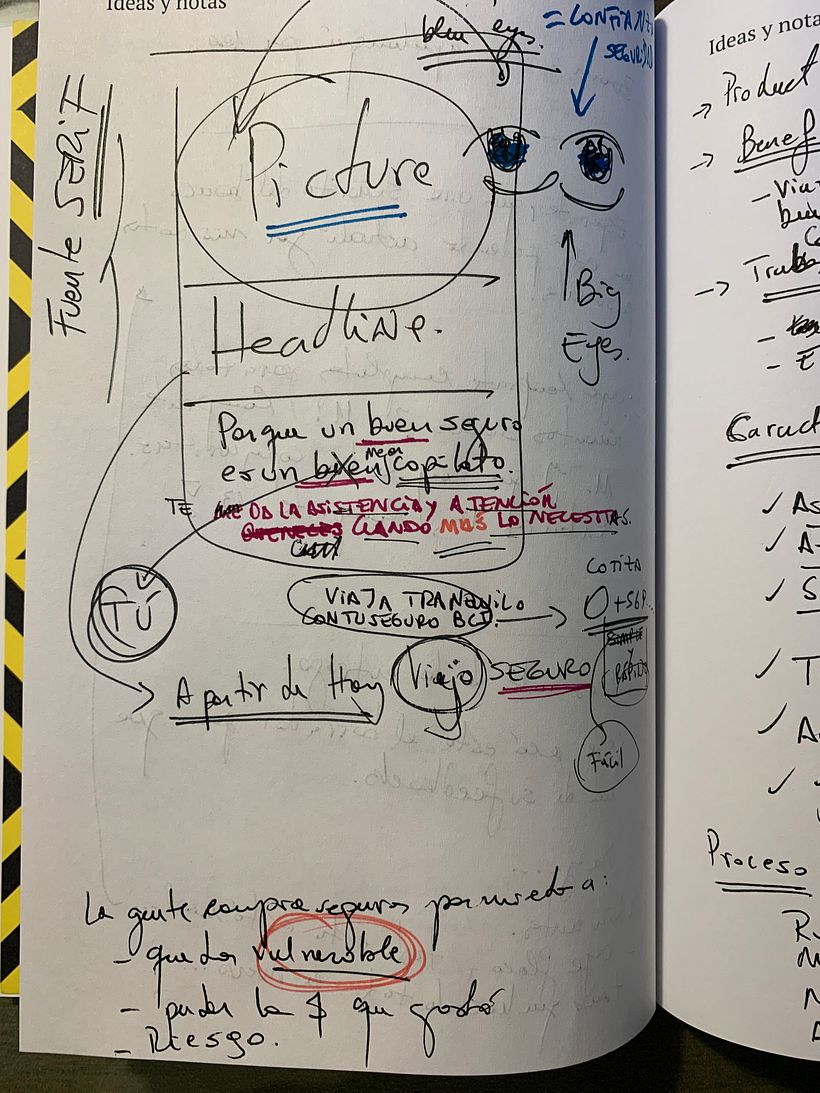 Ideas y notas
blue eyes.
= CONFIANZA
SEGURIDAD
Fuente SERIF
Picture
Big
Eyes.
Headline.
Porque un buen seguro
es un buen Mejor copiloto.
TE DA LA ASISTENCIA y ATENCIÓN
CUANDO MÁS LO NECESITAS.
TÚ
VIAJA TRANQUILO
CON TU SEGURO BCI.
COTIZA
A partir de Hoy Viajo SEGURO
Y
RÁPIDO
Fácil
La gente compra seguros por miedo a:
- quedar vulnerable
- perder la $ que gastó
- Riesgo.
Ideas y nota
→ Product
→ Benef
- Via
→ Trab
- E
Caract
✓ As
✓ A
✓ S
✓ T
✓ A
✓
Proceso
R